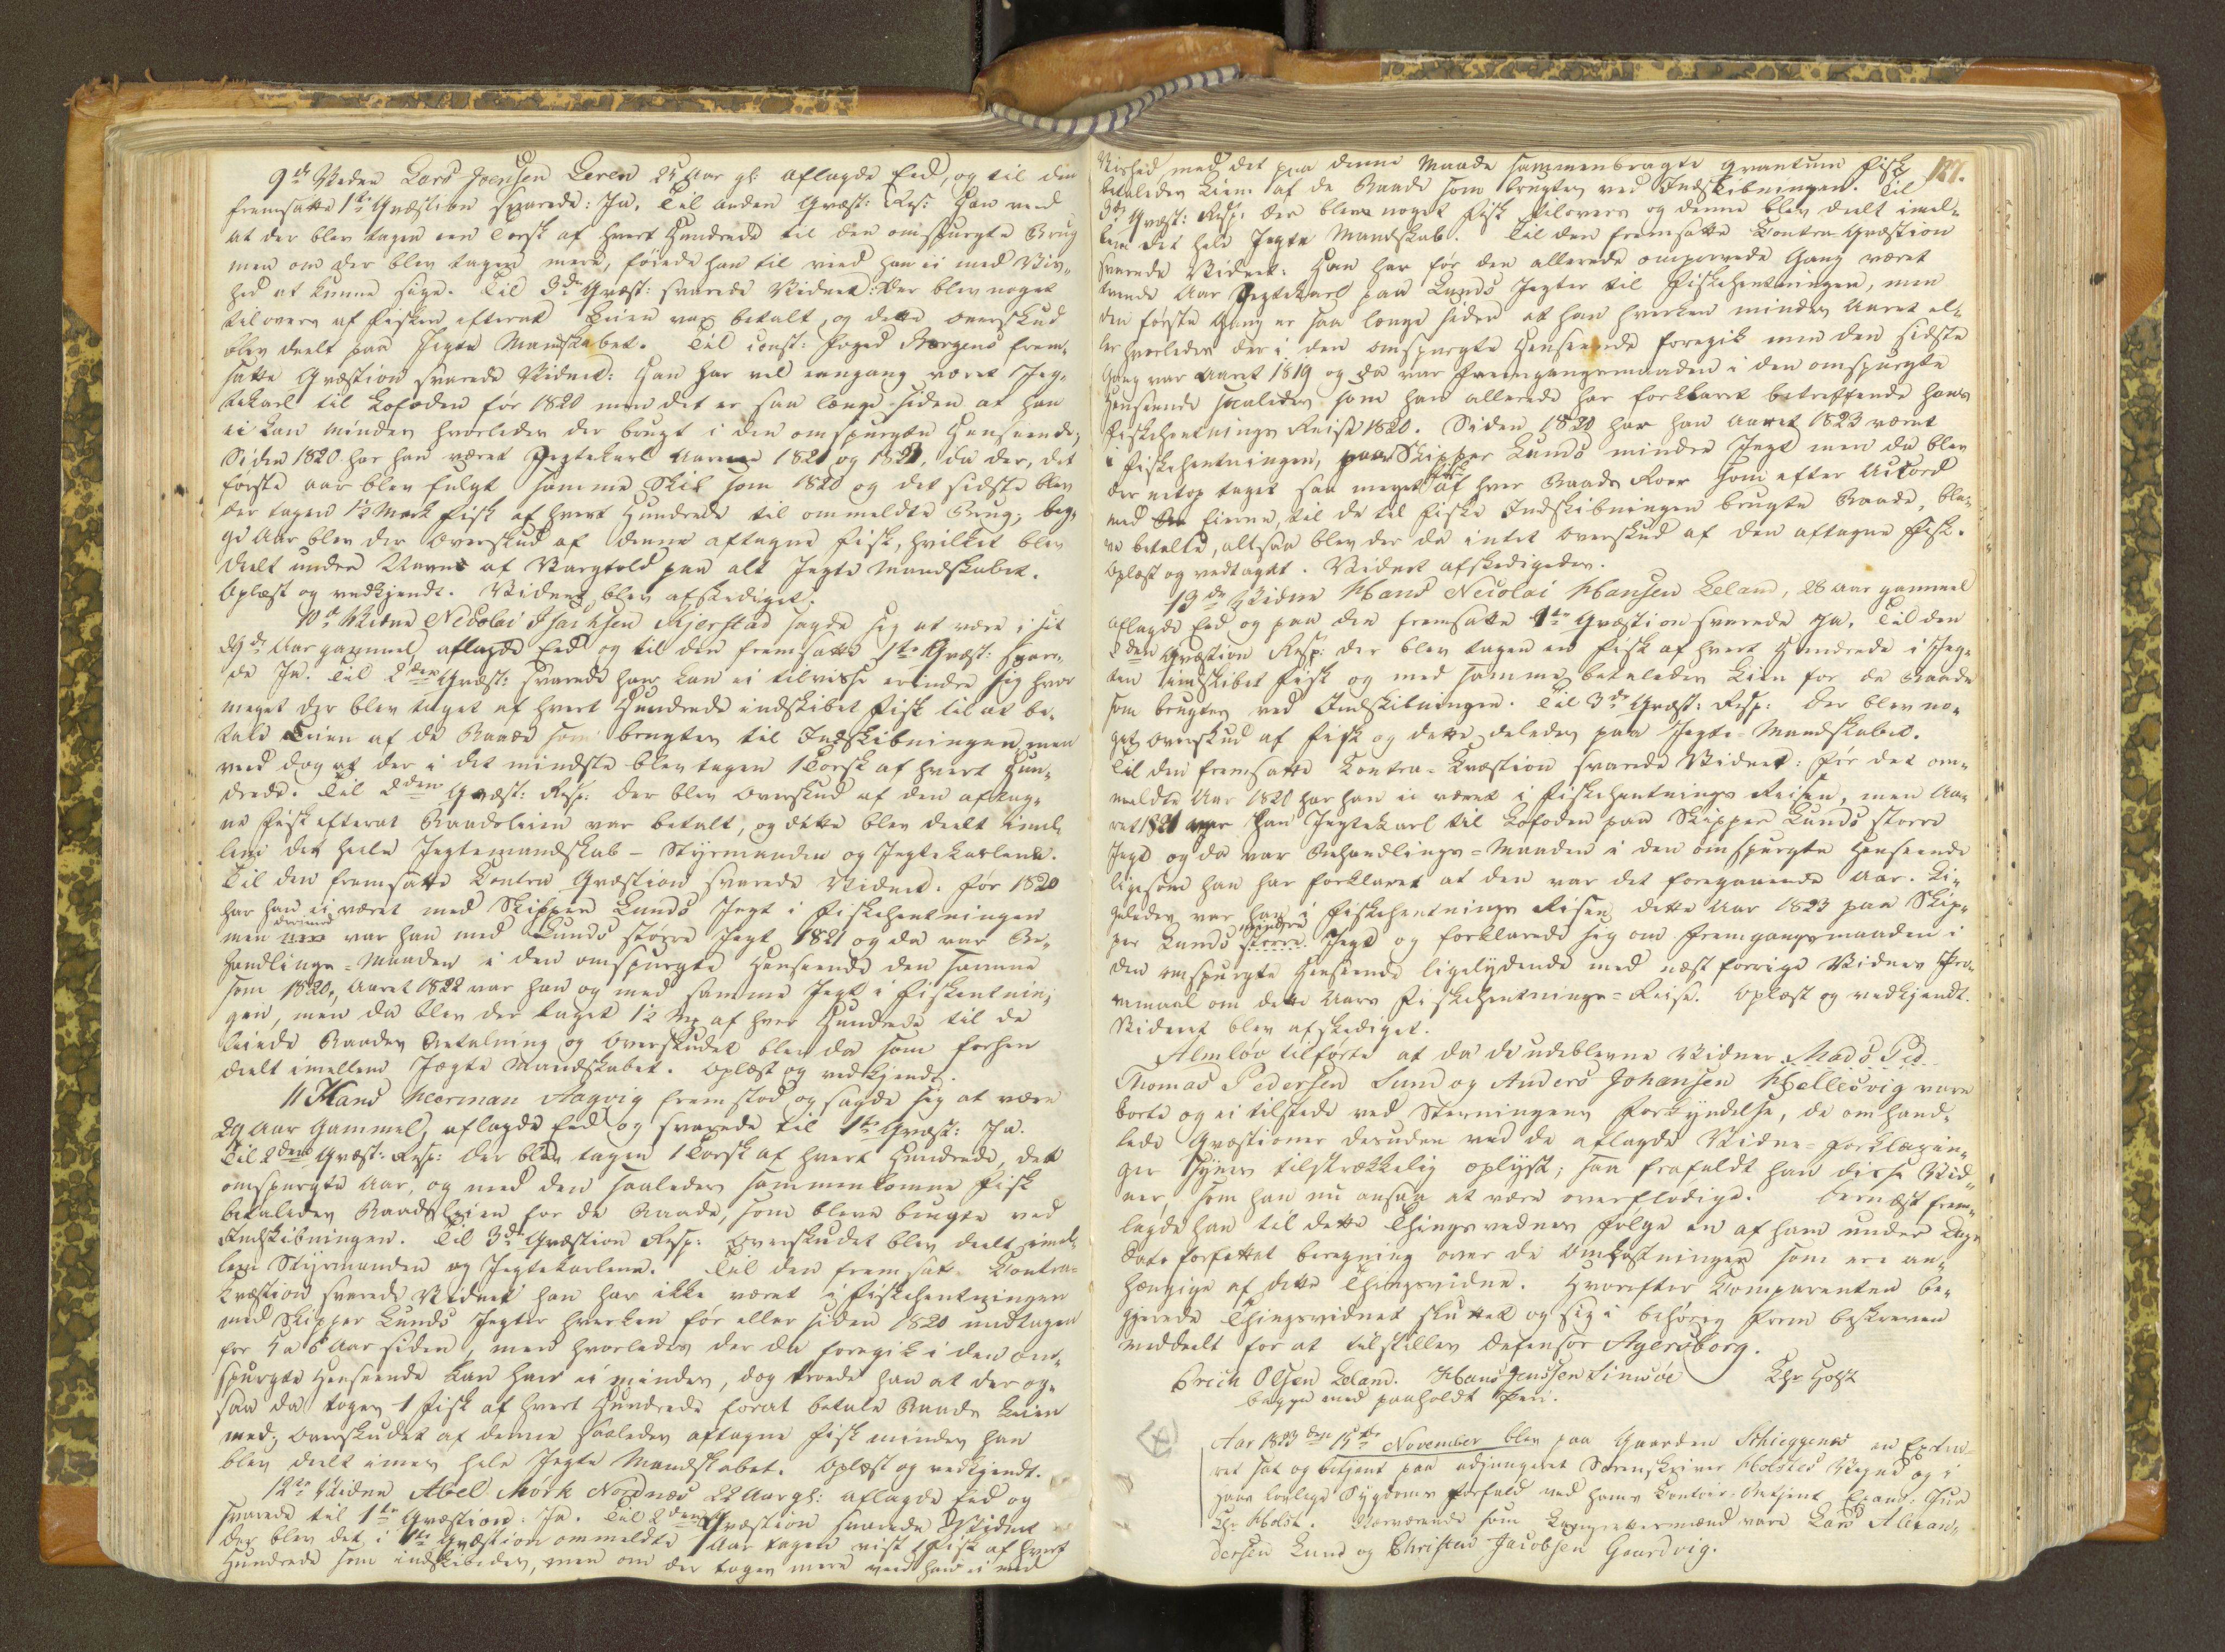 9de Vidne Lars Joensen Leren 25 Aar gl: aflagde Eed, og til den
fremsatte 1te Qvæstion svarede: Ja. Til anden Qvæst: Resp: Han veed
at der blev tagen een Torsk af hvert Hundrede til den omspurgte Brug
men om der blev tagen mere, føiede han til veed han ei med Vis-
hed at kunne sige. Til 3die Qvæst: svarede Vidnet: Der blev noget
tilovers af Fisken efterat Leien var betalt, og dette Overskud
blev deelt paa Jegte Mandskabet. Til const: Foged Borgens frem-
satte Qvæstion svarede Vidnet: Han har vel eengang været Jeg-
tekarl til Lofoden før 1820 men det er saa længe siden at han
ei kan mindes hvorledes der brugt i den omspurgte Henseende;
Siden 1820 har han været Jegtekarl Aarene 1821 og 1822, da der, det
første Aar blev fulgt samme Skik som 1820 og det sidste blev
der tagen 1½ Mark Fisk af hvert Hundrede til ommeldte Brug; beg-
ge Aar blev der Overskud af denne aftagne Fisk, hvilket blev
deelt under Navn af Vargtold paa alt Jegte Mandskabet.
Oplæst og vedkjendt. Vidnet blev afskediget.
10de Vidne Nicolai Isachsen Kjerstad sagde sig at være i sit
29de Aar gammel, aflagde Eed og til den fremsatte 1te Qvæst: svare-
de Ja. Til 2den Qvæst: svarede han kan ei tilvisse erindre sig hvor
meget der blev taget af hvert Hundrede indskibet Fisk til at be-
tale Leien af de Baade som brugtes til Indskibningen, men
veed dog at der i det mindste blev tagen 1 Torsk af hvert Hun-
drede. Til 3den Qvæst: Resp: der blev Overskud af den aftag-
ne Fisk efterat Baadsleien var betalt, og dette blev deelt imel-
lem det heele Jegtemandskab - Styrmanden og Jegtekarlene.
Til den fremsatte Contra Qvæstion svarede Vidnet: før 1820
har han ei været med Skipper Lunds Jegt i Fiskehentningen
men derimod var han med Lunds større Jegt 1821 og da var Be-
handlings-Maaden i den omspurgte Henseende den samme
som 1820, Aaret 1822 var han og med samme Jegt i Fiskentnin-
gen, men da blev der taget 1½ Mk af hver Hundrede til de
leiede Baades Betalning og Overskudet blev da som forhen
deelt imellem Jægte Mandskabet. Oplæst og vedkjendt.
11 Hans Herman Aagvig fremstod og sagde sig at være
29 Aar gammel, aflagde Eed og svarede til 1te Qvæst: Ja.
Til 2den Qvæst: Resp: der blev tagen 1 Torsk af hvert Hundrede, det
omspurgte Aar, og med den saaledes sammenkomne Fisk
betaledes Baadsleien for de Baade, som bleve brugte ved
Indskibningen. Til 3die Qvæstion Resp: Overskudet blev deelt imel-
lem Styrmanden og Jegtekarlene. Til den fremsat Contra-
Qvæstion svarede Vidnet han har ikke været i Fiskehentningen
med Skipper Lunds Jegter hverken før eller siden 1820 undtagen
for 5 a 6 Aar siden, men hvorledes der da foregik i den om-
spurgte Henseende kan han ei mindes, dog troede han at der og-
saa da toges 1 Fisk af hvert Hundrede forat betale Baads Leien
med; Overskudet af denne saaledes aftagne Fisk mindes han
blev deelt imell hele Jegte Mandskabet. Oplæst og vedkjendt.
12te Vidne Abel Mörk Nordnes 22 Aar gl: aflagde Eed og
svarede til 1te Qvæstion: Ja. Til 2den Qvæstion svarede Vidnet
der blev det, i 1te Qvæstion ommeldte Aar tagen vist 1 Fisk af hvert
Hundrede som indskibedes, men om der toges mere veed han ei med
127.
Vished, med det paa denne Maade sammenbragte Qvantum Fisk
betaledes Leien af de Baade som brugtes ved Indskibningen. Til
3die Qvæst: Resp: der blev noget Fisk tilovers og denne blev deelt imel-
lem det hele Jegte Mandskab. Til den fremsatte Contra-Qvæstion
svarede Vidnet: Han har før den allerede omprovede Gang været
tvende Aar Jegtekarl paa Lunds Jegter til Fiskehentningen, men
den første Gang er saa længe siden at han hverken mindes Aaret el-
ler hvorledes der i den omspurgte Henseende foregik men den sidste
Gang var Aaret 1819 og da var Fremgangsmaaden i den omspurgte
Henseende saaledes som han allerede har forklaret betreffende hans
Fiskehentnings Reise 1820. Siden 1820 har han Aaret 1823 været
i Fiskehentningen, paa Skipper Lunds mindre Jegt men da blev
der netop taget saa meget Fisk af hver Baads Roer som efter Accord
med Eierne, til de til Fiske Indskibningen brugte Baade, ble-
ve betalte, altsaa blev der da intet Overskud af den aftagne Fisk.
Oplæst og vedtaget. Vidnet afskedigedes.
13de Vidne Hans Nicolai Hansen Leland, 28 Aar gammel
aflagde Eed og paa den fremsatte 1te Qvæstion svarede Ja. Til den
2den Qvæstion Resp: der blev tagen en Fisk af hvert Hundrede i Jeg-
ten indskibet Fisk og med samme betaledes Leien for de Baade
som brugtes ved Indskibningen. Til 3de Qvæst: Resp: der blev no-
get Overskud af Fisk og dette deledes paa Jegte-Mandskabet.
Til den fremsatte Contra-Qvæstion svarede Vidnet: før det om-
meldte Aar 1820 har han ei været i Fiskehentnings Reisen, men Aa-
ret 1821 var han Jegtekarl til Lofoden paa Skipper Lunds større
Jegt og da var Behandlings-Maaden i den omspurgte Henseende
ligesom han har forklaret at den var det foregaaende Aar. Li-
geledes var han i Fiskehentnings Reisen dette Aar 1823 paa Skip-
per Lunds mindre større Jegt og forklarede sig om Fremgangsmaaden i
den omspurgte Henseende ligelydende med næst forrige Vidnes Pro-
vemaal om dette Aars Fiskehentnings-Reise. Oplæst og vedkjendt.
Vidnet blev afskediget.
Almlöv tilførte at da de udeblevne Vidner Mads Ped
Thomas Pedersen Lund og Anders Johansen Hellesvig vare
borte og ei tilstede ved Stevningens Forkyndelse, de omhand-
lede Qvæstioner desuden ved de aflagde Vidne-Forklarin-
ger synes tilstrækkelig oplyst; saa frafaldt han disse Vid-
ner, som han nu ansaa at være overflødige. Dernæst frem-
lagde han til dette Thingsvidnes følge en af ham under Dags
Dato forfattet Beregning over de Omkostninger som ere an-
hængige af dette Thingsvidne. Hvorefter Comparenten be-
gjerede Thingsvidnet sluttet og sig i behørig Form beskreven
meddeelt for at tilstilles Defensor Agersborg.
Erich Olsen Leland. Hans Jenssen Simsöe Chr Holst
begge med paaholdt Pen.
Aar 1823 den 15de November blev paa Gaarden Schieggenes en Extra-
ret sat og betjent paa adjungeret Sorenskriver Holstes Vegne og i
hans lovlige Sygdoms Forfald ved hans Contoir-Betjent Exam: Jur
Chr Holst. Nærværende som Laugrettesmænd vare Lars Alexan-
dersen Lund og Christen Jacobsen Gaardvig.